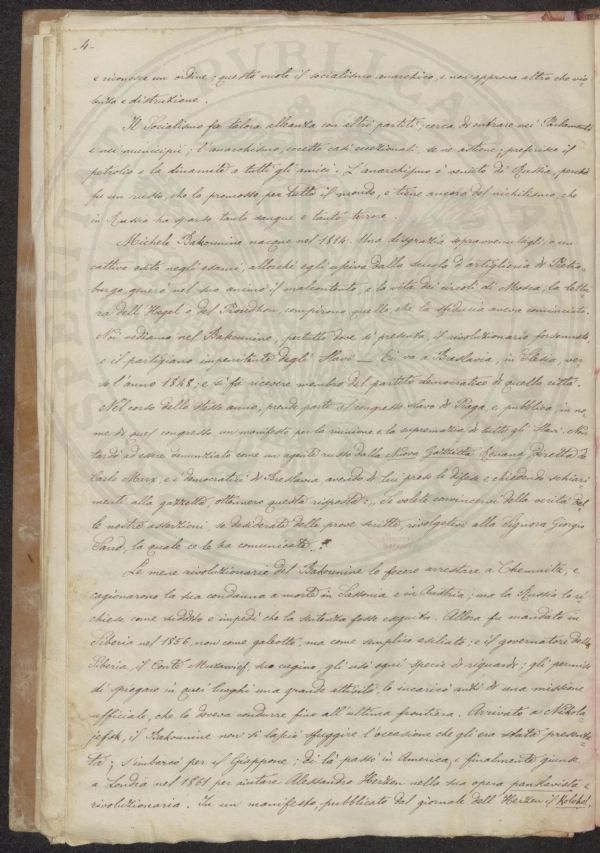 - 4 -
e riconosca un ordine; questo vuole il socialismo anarchico, e non approva altro che vio-
lenza e distruzione.
Il Socialismo fa talora alleanza con altri partiti; cerca di entrare nei Parlamenti
e nei municipii; l'anarchismo, eccetto casi eccezionali, se ne astiene; preferisce il
petrolio e la dinamite a tutti gli amici. L'anarchismo è venuto di Russia, perchè
fu un russo, che lo promosse per tutto il mondo, e tiene ancora del nichilismo, che
in Russia ha sparso tanto sangue e tanto terrore.
Michele Bakounine nacque nel 1814. Una disgrazia sopravvenutagli, o un
cattivo esito negli esami, allorchè egli usciva dalla scuola d'artiglieria di Pietro-
burgo, generò nel suo animo il malcontento, e la vita dei circoli di Mosca, la lettu-
ra dell'Hegel e del Proudhon, compirono quello, che la sfiducia aveva cominciato.
Noi vediamo nel Bakounine, pertutto dove si presenta, il rivoluzionario forsennato,
e il partigiano impenitente degli Slavi — Ei va a Breslavia, in Slesia, ver-
so l'anno 1848, e si fa ricevere membro del partito democratico di quella città.
Nel corso dello stesso anno, prende parte al congresso slavo di Praga, e pubblica in no-
me di quel congresso un manifesto per la riunione e la supremazia di tutti gli Slavi. Non
tardò ad essere denunziato come un agente russo dalla Nuova Gazzetta Renana diretta da
Carlo Marx, e i democratici di Breslavia avendo di lui preso le difese e chiedendo schiari-
menti alla gazzetta, ottennero questa risposta: „Se volete convincervi della verità del-
le nostre asserzioni, se desiderate delle prove scritte, rivolgetevi alla Signora Giorgio
Sand, la quale ce le ha comunicate„.
Le mene rivoluzionarie del Bakounine lo fecero arrestare a Chemnitz, e
cagionarono la sua condanna a morte in Sassonia e in Austria; ma la Russia lo ri-
chiese come suddito e impedì che la sentenza fosse eseguita. Allora fu mandato in
Siberia nel 1856, non come galeotto, ma come semplice esiliato; e il governatore della
Siberia, il Conte Murawief, suo cugino, gli usò ogni specie di riguardi; gli permise
di spiegare in quei luoghi una grande attività, lo incaricò anzi di una missione
ufficiale, che lo doveva condurre fino all'ultima frontiera. Arrivato a Nikola-
jefsk, il Bakounine non si lasciò sfuggire l'occasione che gli era stata presenta-
ta; s'imbarcò per il Giappone; di là passò in America, e finalmente giunse
a Londra nel 1861 per aiutare Alessandro Herzen nella sua opera panslavista e
rivoluzionaria. In un manifesto, pubblicato dal giornale dell'Herzen il Kolokol,